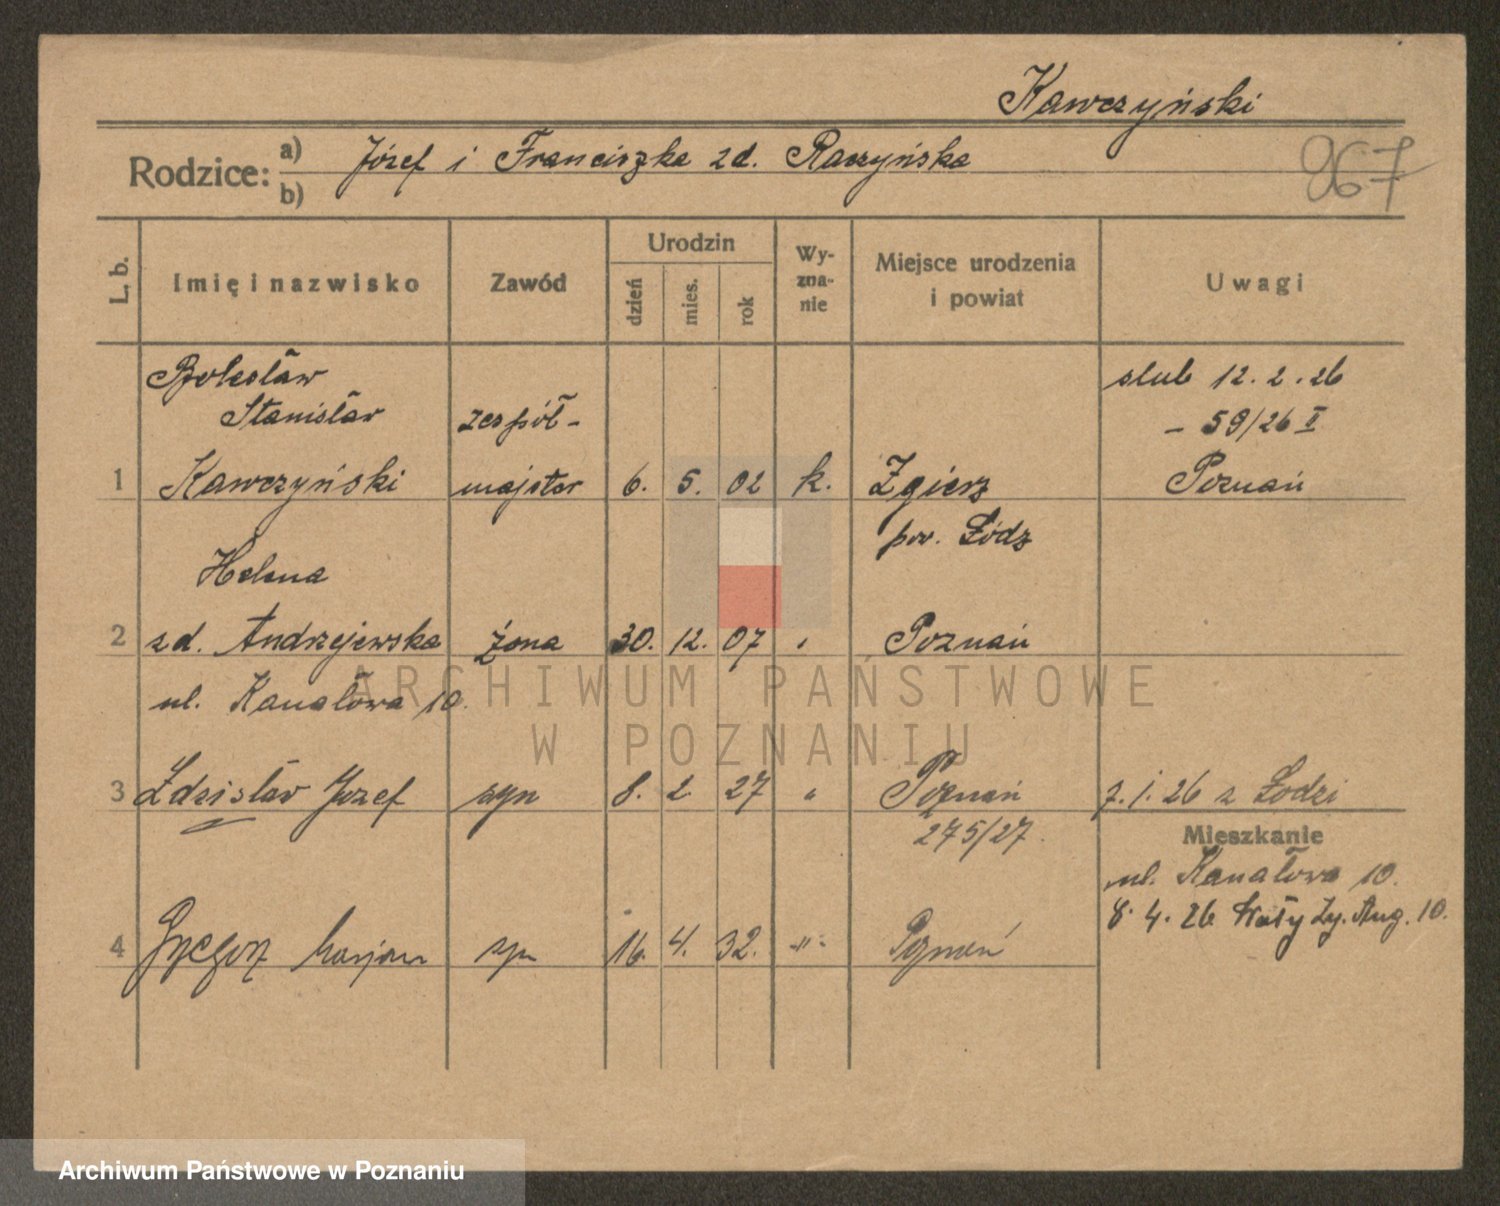 Kawczyński
Rodzice: a) Józef i Franciszka zd. Raczyńska
b)
967
L. b.
Imię i nazwisko
Zawód
Urodzin
dzień
mies.
rok
Wy-
zna-
nie
Miejsce urodzenia
i powiat
Uwagi
Bolesław
Stanisław
zespół-
ślub 12.2.26
- 59/26 II
1 Kawczyński majster 6. 5. 02 k. Zgierz Poznań
pow. Łódz
Helena
2 zd. Andrzejewska żona 30. 12. 07 " Poznań
ul. Kanałowa 10.
3 Zdzisław Józef syn 8. 2. 27 " Poznań 7.1.26 z Łodzi
275/27.
Mieszkanie
ul. Kanałowa 10.
8.4.26 Wały Zy. Aug. 10.
4 Grzegorz Marjan syn 16. 4. 32. -"- Poznań
ARCHIWUM PAŃSTWOWE
W POZNANIU
Archiwum Państwowe w Poznaniu